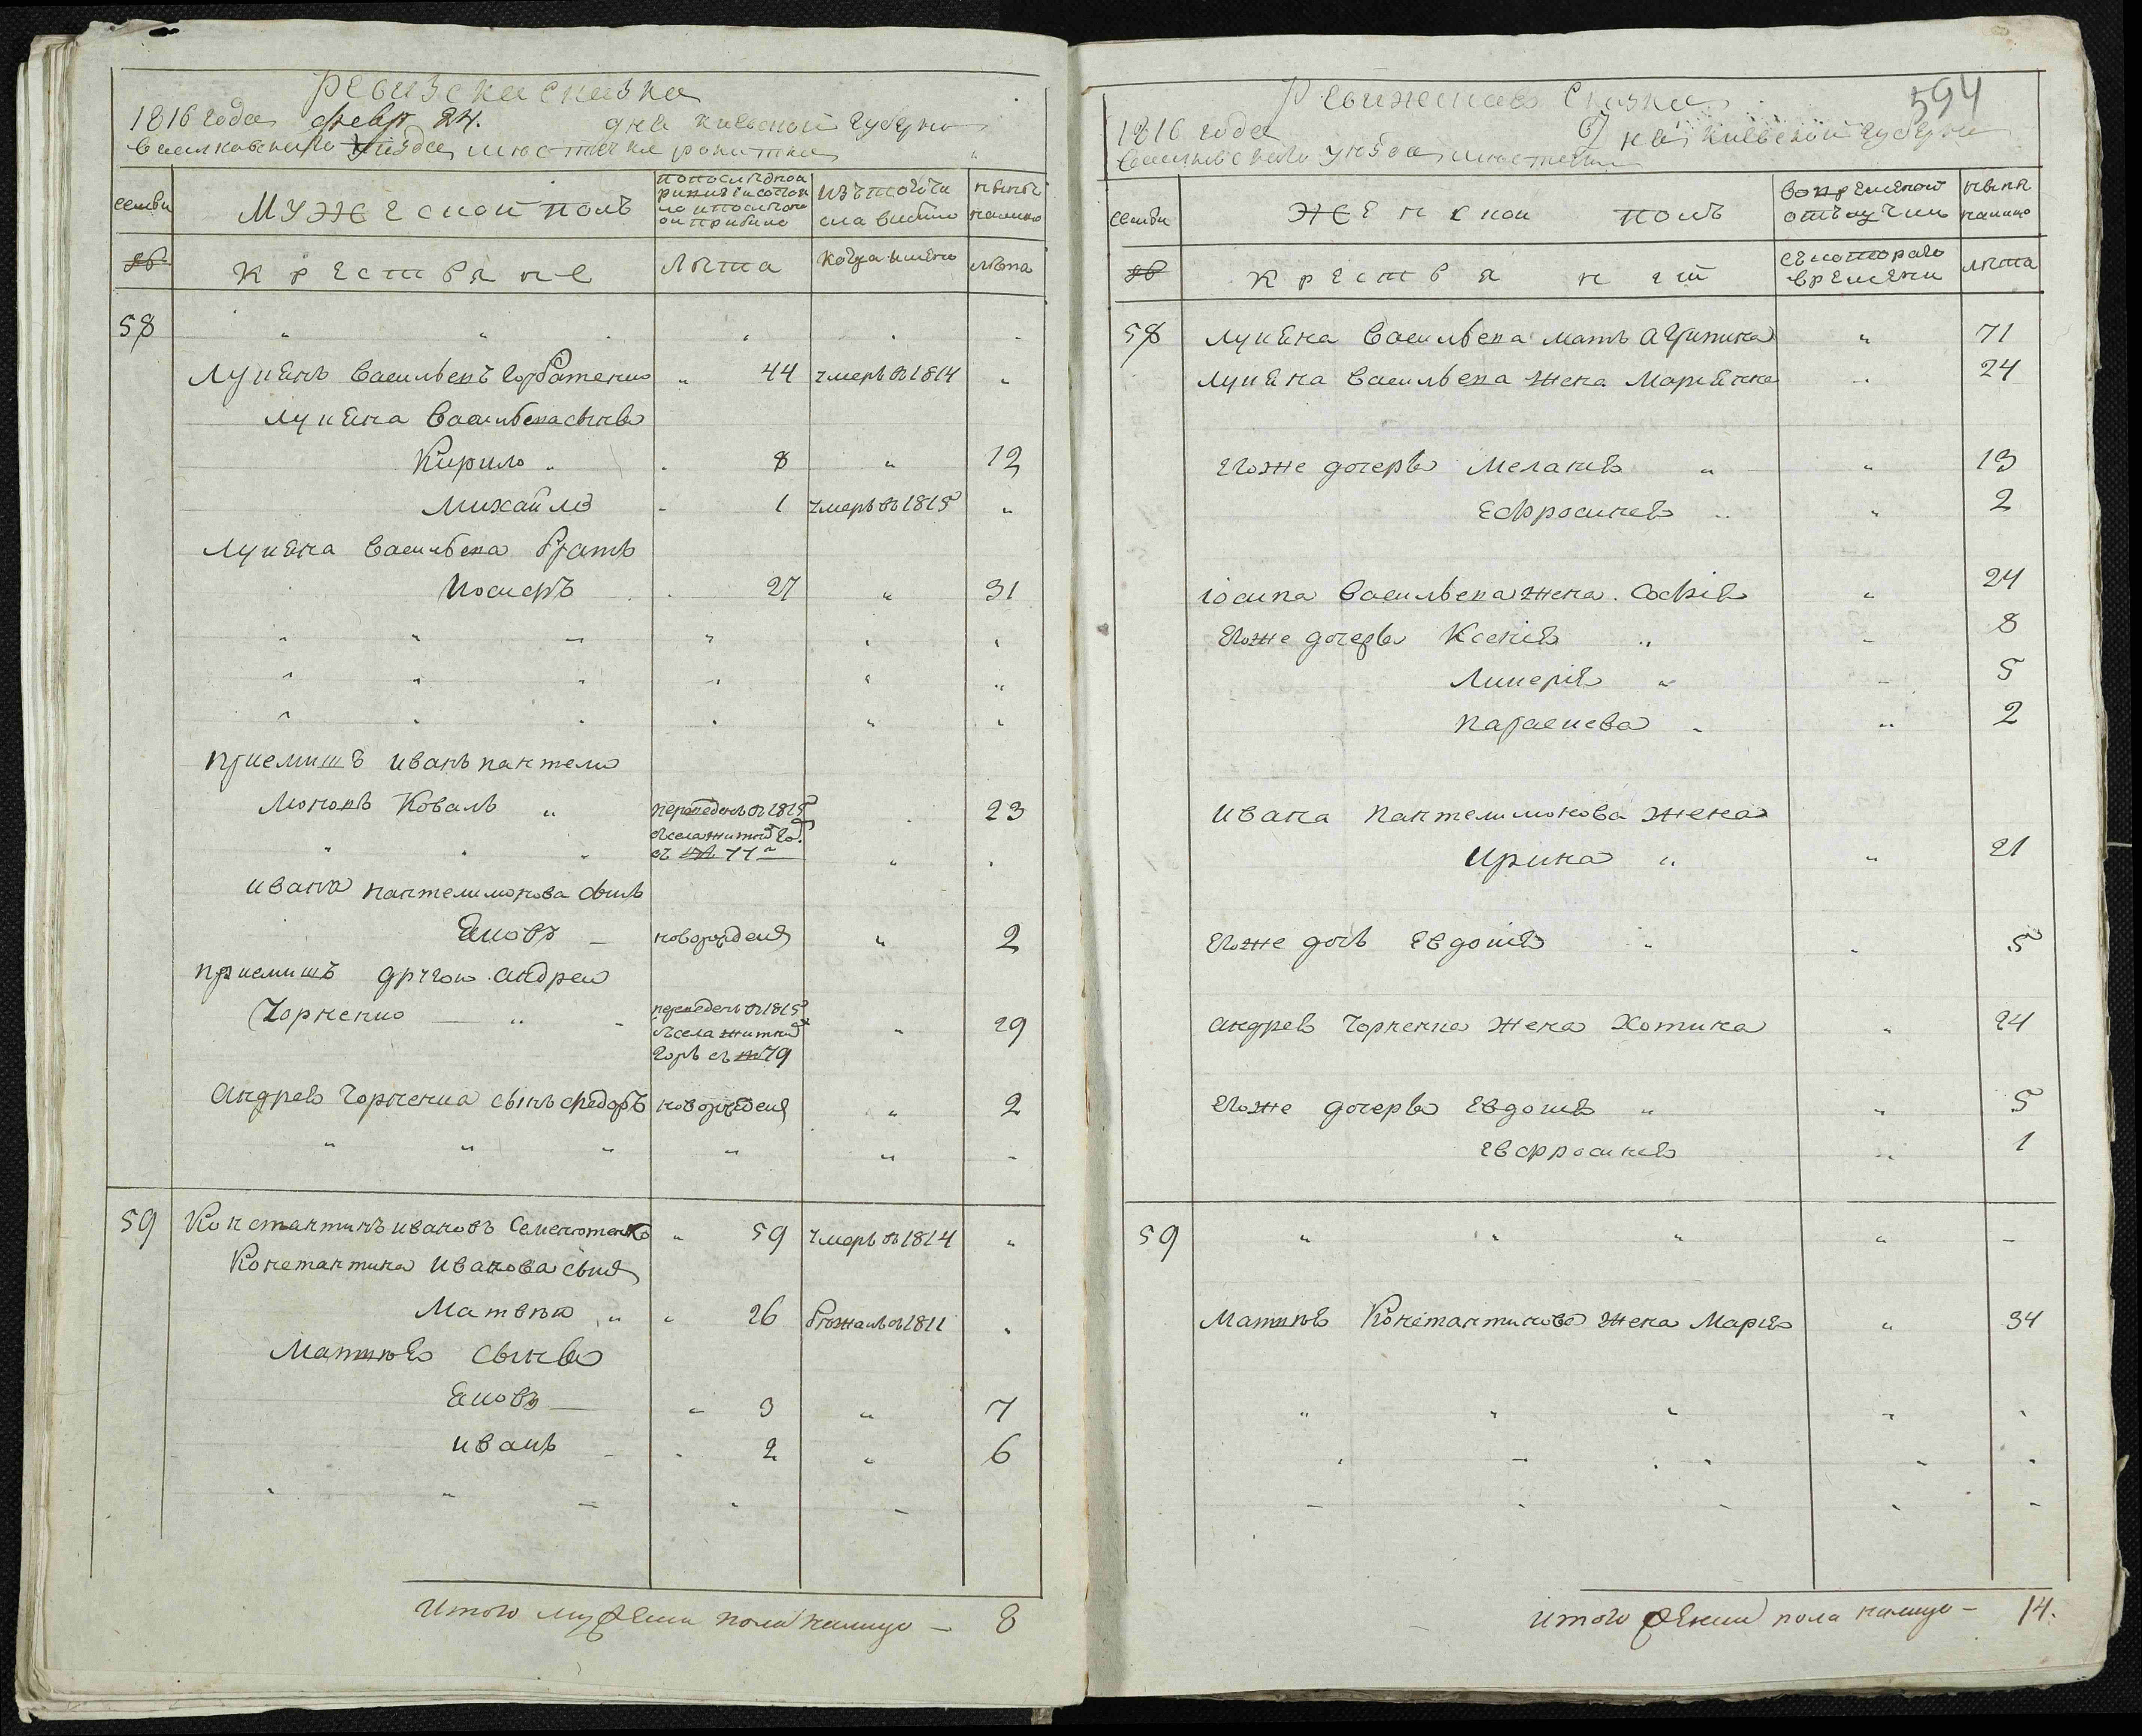 Ревизская сказка
1816 года февр 24. дня киевской губернии
Василковского уѣзда местечка ракитна
семьи
Мужеской полъ
по последной ревизіи состояло и после оной прибыло
изъ того числа выбыло
нынѣ налицо
№
крестьяне
Лѣта
когда имено
лѣта
58
Лукянъ Васильевъ Горбатенко 44 умеръ въ 1814
Лукяна Васильева сыновья
Кирило 8 12
Михайло 1 умеръ въ 1815
Лукяна Васильева братъ
Иосифъ 27 31
приемишъ иванъ пантели
моновъ Коваль переведенъ въ 1815 23
съ села житных гор
съ № 77
ивана пантелимонова сынъ
Яковъ новорожденъ 2
приемишъ другои андреи
Чорненко переведенъ въ 1815 29
съ села житных
горъ съ № 79
Андрея Чорненка сынъ федоръ новорожденъ 2
59 Константинъ ивановъ Семенютенко 59 умеръ въ 1814
Константина Иванова сынъ
Матвѣй 26 бѣжалъ въ 1811
Матвѣя сыновья
Яковъ 3 7
иванъ 2 6
итого мужеска пола налицо — 8
594
Ревижская Сказка
1816 года дня киевской губерни
Василковского уѣзда местечка
семьи
Женскои полъ
во временой отлучки
нынѣ налицо
№
крестьянки
съ котораго времени
лѣта
58 Лукяна Васильева мать Агрипина 71
Лукяна Васильева жена Марияна 24
Егоже дочеря Меланія 13
Ефросинія 2
іосипа Васильева жена Софія 24
Егоже дочеря Ксенія 8
Ликерія 5
параскева 2
Ивана Пантелимонова жена
Ирина 21
Егоже дочь Евдокія 5
Андрея Чорненка жена Хотина 24
Егоже дочеря Евдокія 5
Евфросинія 1
59
Матвѣя Константинова жена Марія 34
итого женска пола налицо — 14.